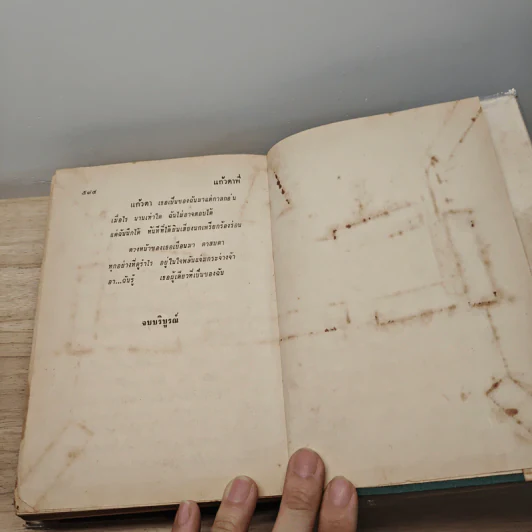 ๕๘๕
แก้วตาพี่
แก้วตา เธอเป็นของฉันมาแต่กาลก่อน
เมื่อไร นานเท่าใด ฉันไม่อาจตอบได้
แต่ฉันนึกได้ ทันทีที่ได้ยินเสียงนกเหรียกร้องร่อน
ดวงหน้าของเธอเบือนมา ตาสบตา
ทุกอย่างที่ดูรำไร อยู่ในใจพลันแจ่มกระจ่างจ้า
อา...ฉันรู้ เธอผู้เดียวที่เป็นของฉัน
จบบริบูรณ์